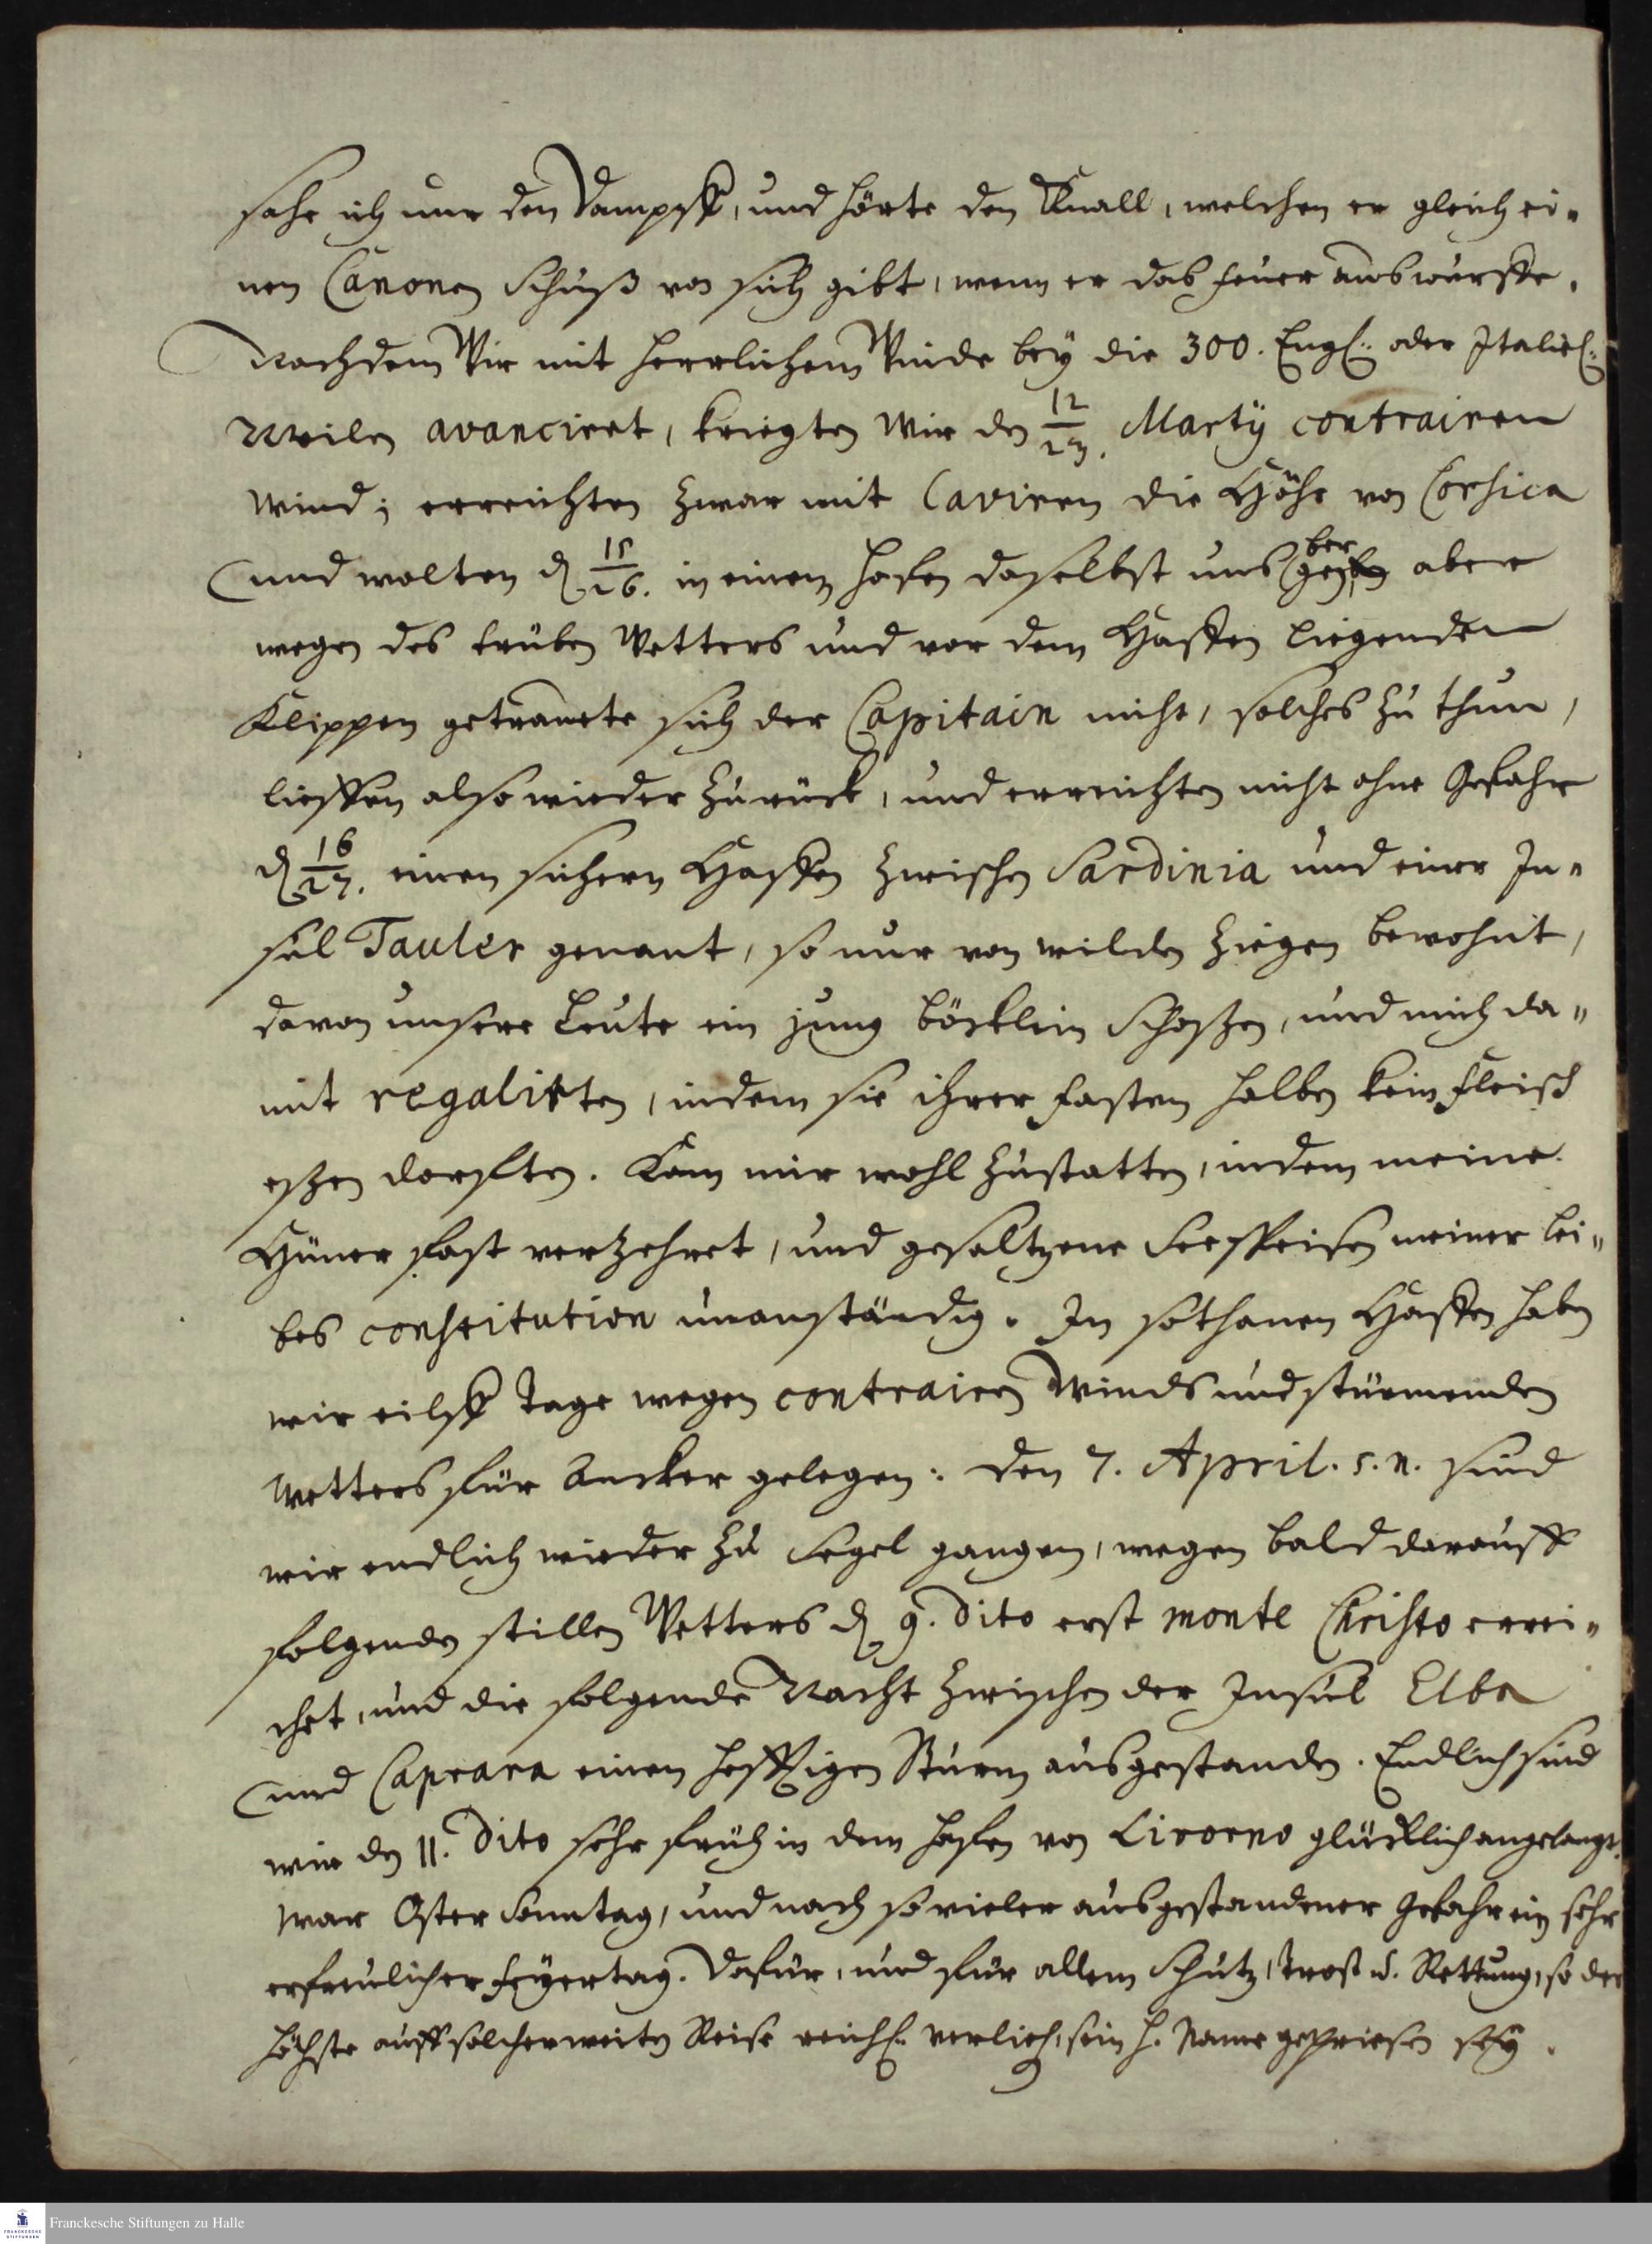 sahe ich nur den Dampff, und hörte den Knall, welchen er gleich ei-
nen Canonen Schuß von sich gibt, wenn er das feuer auswurffe.
Nachdem Wir mit herrlichem Winde bey die 300. Engl: oder Italieni:
Meilen avanciret, kriegten Wir den 12/23. Martÿ contrairen
Wind; erreichten zwar mit Laviren die Höhe von Corsica
und wolten d 15/26. in einem hafen daselbst uns bergen aber
wegen des trüben Wetters und vor dem Haffen liegenden
Klippen getrauete sich der Capitain nicht, solches zu thun,
lieffen also wieder zurück, und erreichten nicht ohne Gefahr
d 16/27. einen sichern Haffen zwischen Sardinia und einer In-
sul Tauler genant, so nur von wilden Ziegen bewohnt,
davon unsere Leute ein jung böcklein schoszen, und mich da-
mit regalirten, indem sie ihrer fasten halben kein fleisch
eszen dorfften. Kam mir wohl zustatten, indem meine
Hüner fast verzehret, und gesaltzene Seespeisen meiner lei-
bes constitution unanständig. In sothanen Haffen haben
wir eilff Tage wegen contrairen Winds und stürmenden
Wetters für Ancker gelegen: den 7. April. s. n. sind
wir endlich wieder zu Segel gangen, wegen bald darauff
folgenden stillen Wetters d 9. dito erst monte Christo errei-
chet, und die folgende Nacht zwischen der Insul Elba
und Capeara einen hefftigen Sturm ausgestanden. Endlich sind
wir den 11. Dito sehr früh in dem hafen von Livorno glücklich angelangt.
War Oster Sonntag, und nach so vieler ausgestandener gefahr ein sehr
erfreulicher feyertag. Dafür, und für allem Schutz, Trost u. Rettung, so der
höchste auff solcher weiten Reise reichl. verlieh, sein h. Name gepriesen sey.
Franckesche Stiftungen zu Halle